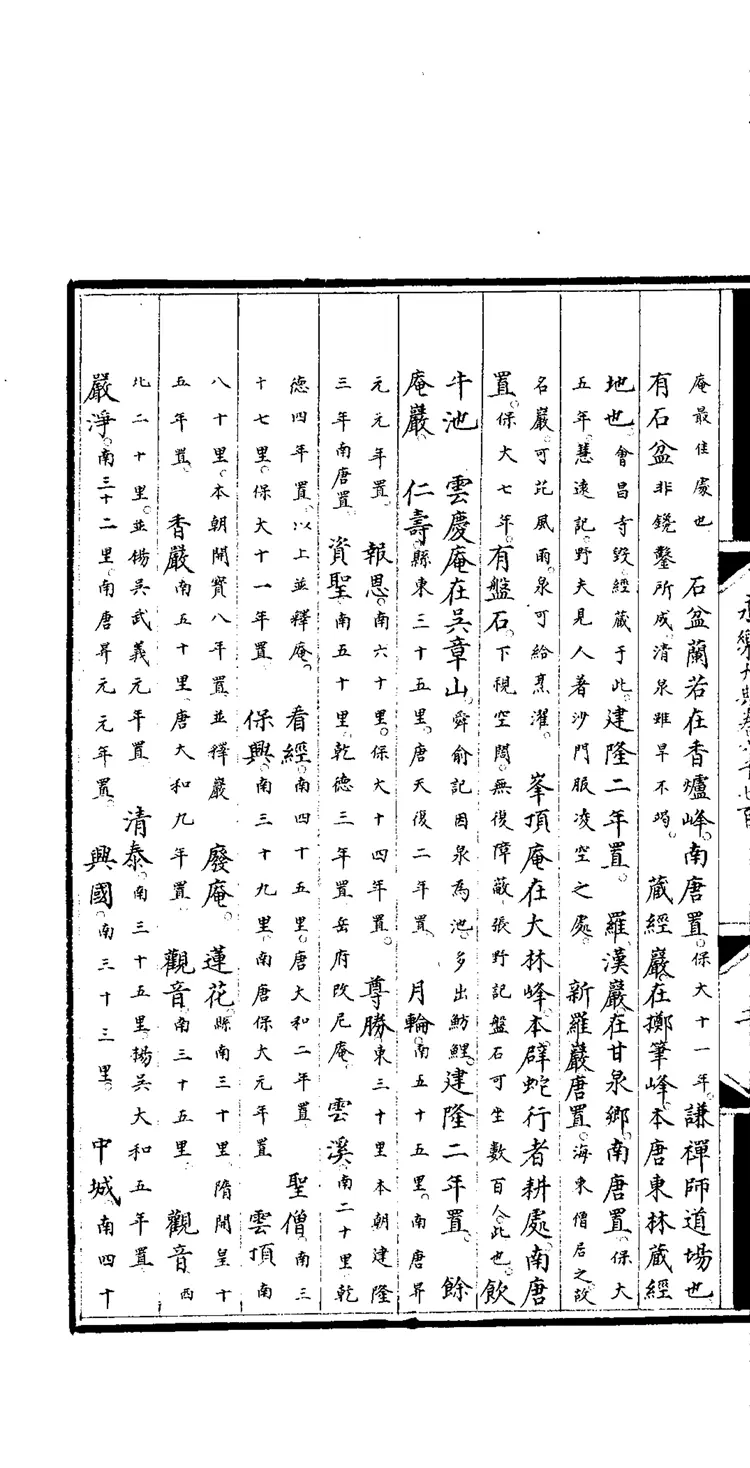 庵最佳處也　石盆蘭若在香爐峰。南唐置。保大十一年。謙禪師道場也。
有石盆非鐫鑿所成。清泉雖旱不竭。　藏經巖在擲筆峰。本唐東林藏經
地也。會昌寺毀。經藏于此。建隆二年置。　羅漢巖在甘泉鄉。南唐置。保大
五年。慧遠記。野夫見人著沙門服凌空之處。　新羅巖唐置。海東僧居之。故
名巖。可芘風雨。泉可給烹濯。　峯頂庵在大林峰。本辟蛇行者耕處。南唐
置。保大七年。有盤石。下視空闊。無復障蔽。張野記盤石可坐數百人。此也。飲
牛池　雲慶庵在吳章山。舜俞記因泉為池。多出魴鯉。建隆二年置。　餘
庵巖　仁壽。縣東三十五里。唐天復二年置　月輪。南五十五里。南唐昇
元元年置　報恩。南六十里。保大十四年置。　尊勝。東三十里本朝建隆
三年南唐置　資聖。南五十里。乾德三年置岳府改尼庵。　雲溪。南二十里。乾
德四年置。以上並釋庵。　看經。南四十五里。唐大和二年置　聖僧。南三
十七里。保大十一年置　保興。南三十九里。南唐保大元年置　雲頂南
八十里。本朝開寶八年置。並釋巖　廢庵。　蓮花。縣南三十里。隋開呈十
五年置　香嚴南五十里。唐大和九年置　觀音。南三十五里　觀音西
北二十里。並楊吳武義元年置　清泰。南三十五里。楊吳大和五年置
嚴淨。南三十二里。南唐昇元元年置。　興國。南三十三里。　中城。南四十